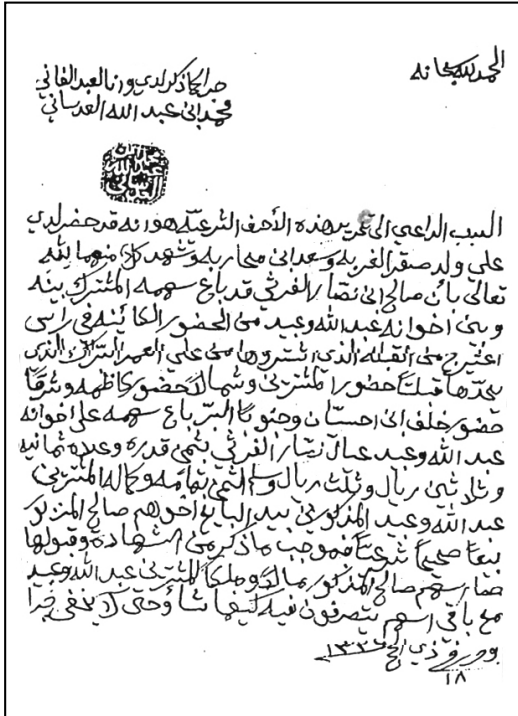 الحمد لله سبحانه
جرا لحاذكر لدي وانا العبد الفاني
محمد ابن عبد الله العدساني
السبب الداعي الى تحرير هذه الأحرف الشرعية هو انه قد حضر لدي
علي ولد صقر الغربه وسعد ابن محاربه وشهد كلا منهما لله
تعالى بأن صالح ابن نصار الفرثي قد باع سهمه المشترك بينه
وبين اخوانه عبد الله وعيد من الحضور الكائنه في راس
من القبله الذي اشتروها من علي العمير التراك الذي
يحدها قبلتاً حضور المشتري وشمالاً حضور كاظمه وشرقاً
حضور خلف ابن احسان وجنوباً البر باع سهمه على اخوانه
عبد الله وعيد عيال نصار الفرثي بثمن قدره وعداه ثمانيه
وثلاثين ريال وثلث ريال وسلم الثمن بتمامه وكماله المشترين
عبد الله وعيد المذكورين بيد البايع اخوهم صالح المذكور
بيعاً صحيحاً شرعياً فبموجب ما ذكر من الشهاده وقبولها
صار سهم صالح المذكور مالاً وملكاً للمشترين عبد الله وعيد
مع باقي اسهم يتصرفون فيه كيفما شاؤ وحتى لا يخفى جرا
وحرر في ذي الحج ١٣٣٦
١٨